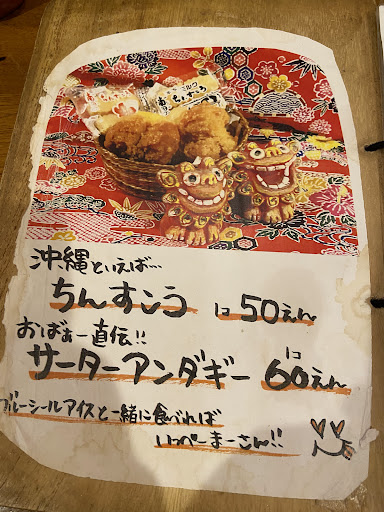 沖縄といえば…
ちんすこう 1コ50えん
おばぁー直伝!!
サーターアンダギー 1コ60えん
ブルーシールアイスと一緒に食べれば
いっぺーまーさん!!